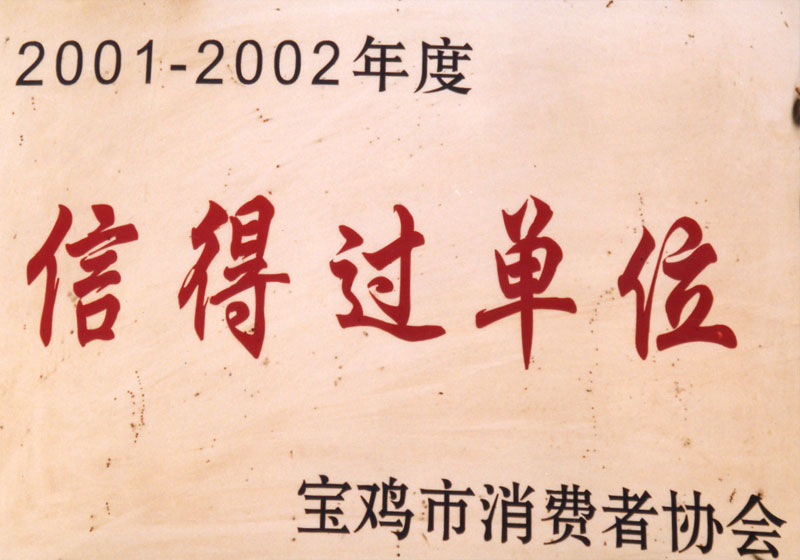 2001-2002年度
信得过单位
宝鸡市消费者协会